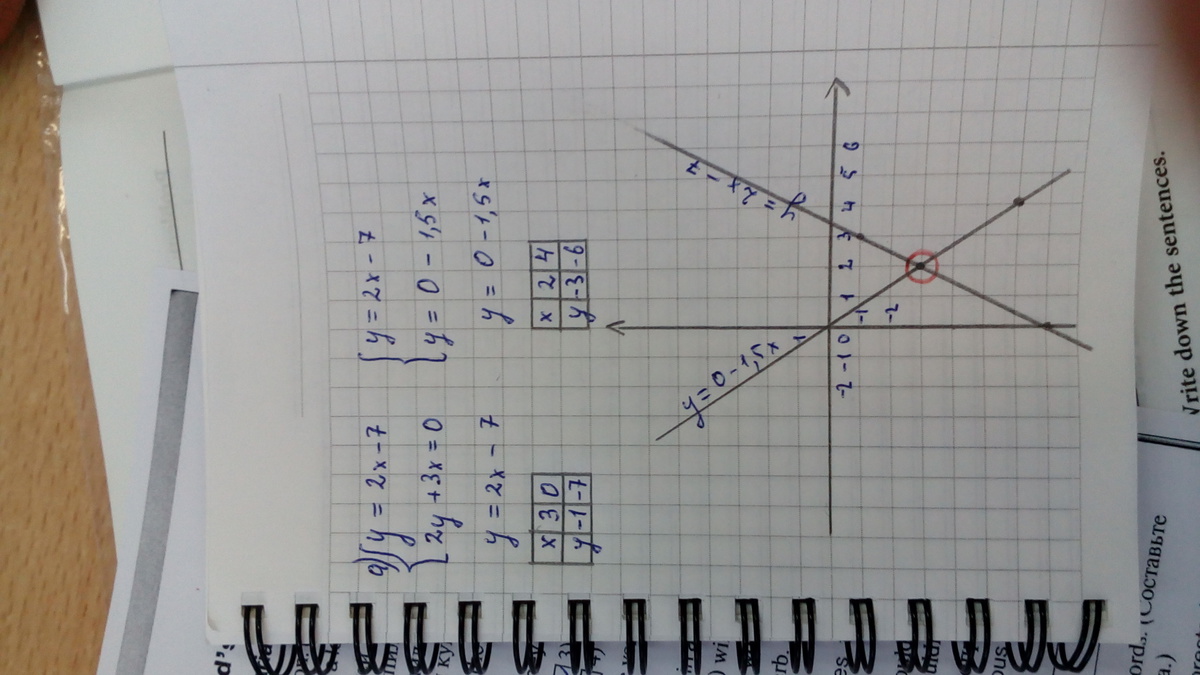 а) { y = 2x - 7
{ 2y + 3x = 0
{ y = 2x - 7
{ y = 0 - 1,5x
y = 2x - 7
x 3 0
y -1 -7
y = 0 - 1,5x
x 2 4
y -3 -6
y = 0 - 1,5x
y = 2x - 7
1
-2 -1 0 1 2 3 4 5 6
-1
-2
Write down the sentences.
ord. (Составьте
a.)